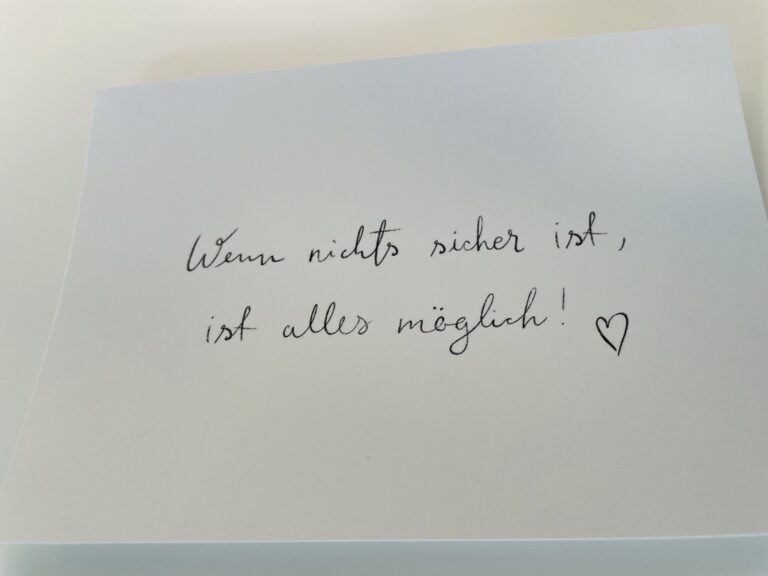 Wenn nichts sicher ist,
ist alles möglich! ♡